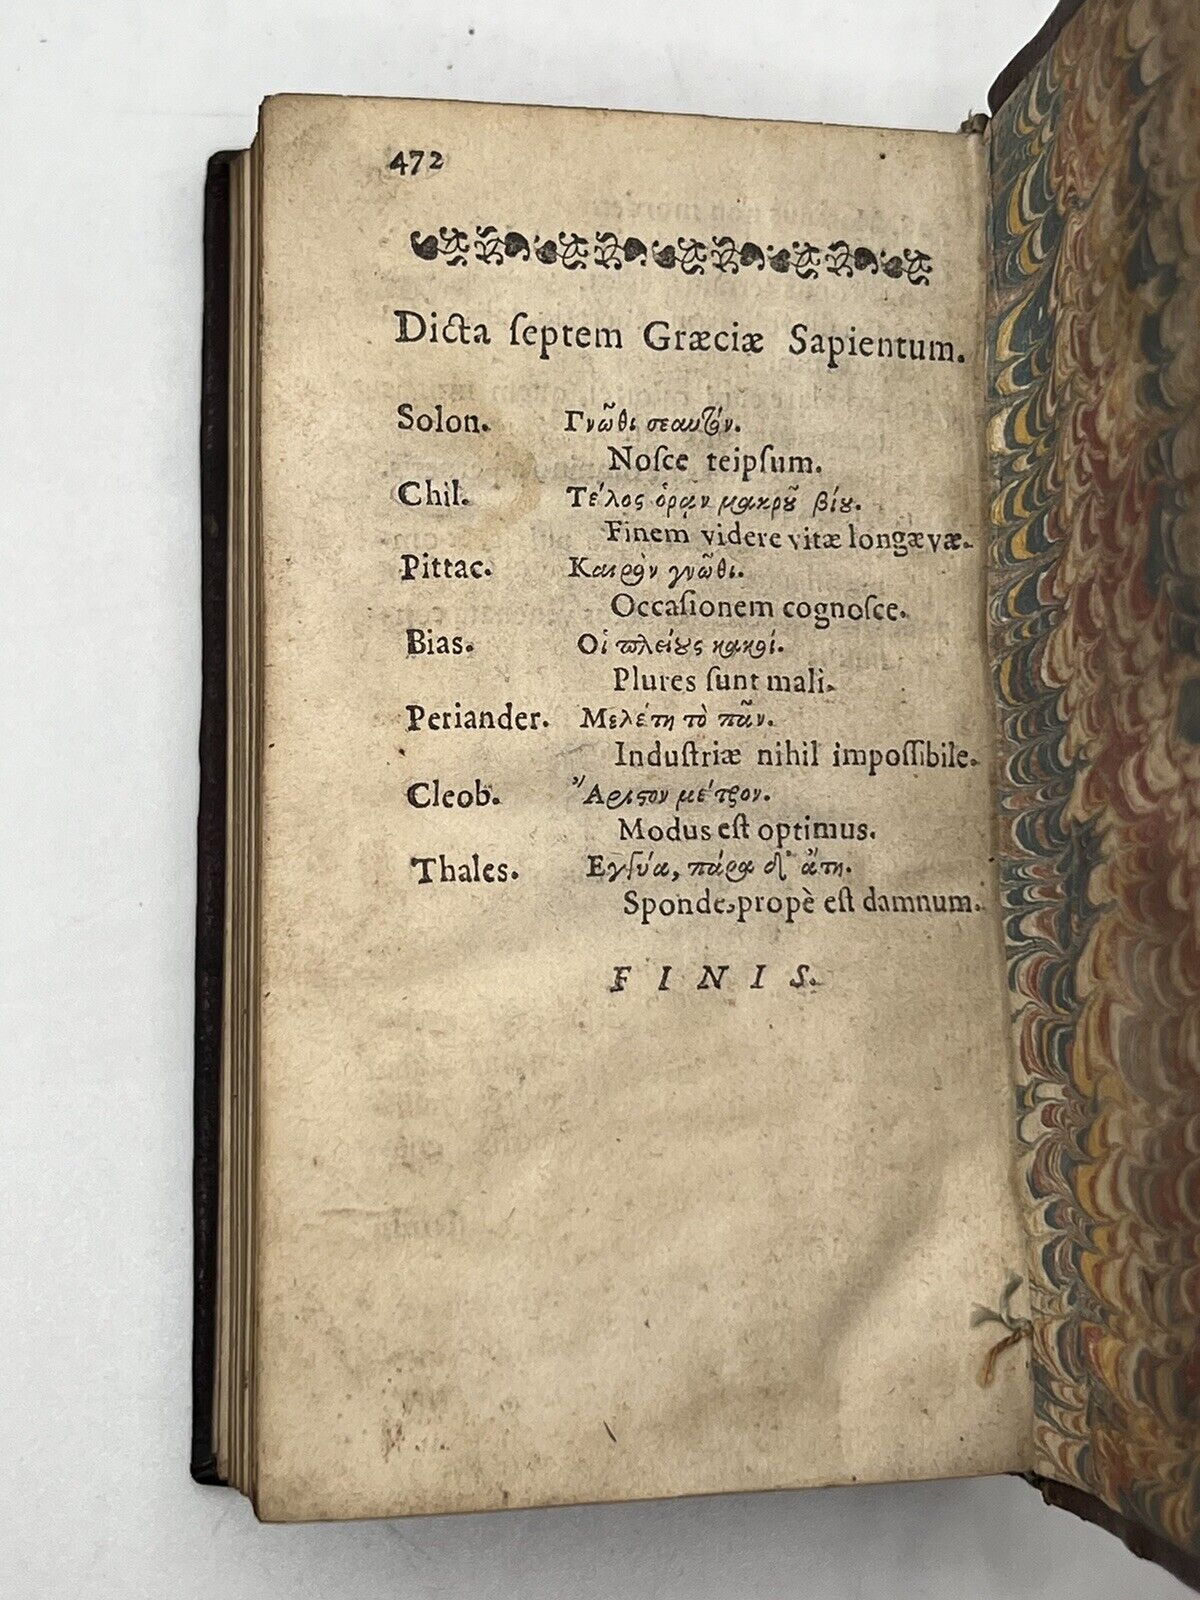 472
Dicta ſeptem Græciæ Sapientum.
Solon. Γνῶθι σεαυτόν.
Noſce teipſum.
Chil. Τέλος ὁρᾷν μακροῦ βίου.
Finem videre vitæ longævæ.
Pittac. Καιρὸν γνῶθι.
Occaſionem cognoſce.
Bias. Οἱ πλείους κακοί.
Plures ſunt mali.
Periander. Μελέτη τὸ πᾶν.
Induſtriæ nihil impoſſibile.
Cleob. Ἄριστον μέτρον.
Modus eſt optimus.
Thales. Εγγύα, πάρα δ' ἄτη.
Sponde, propè eſt damnum.
FINIS.